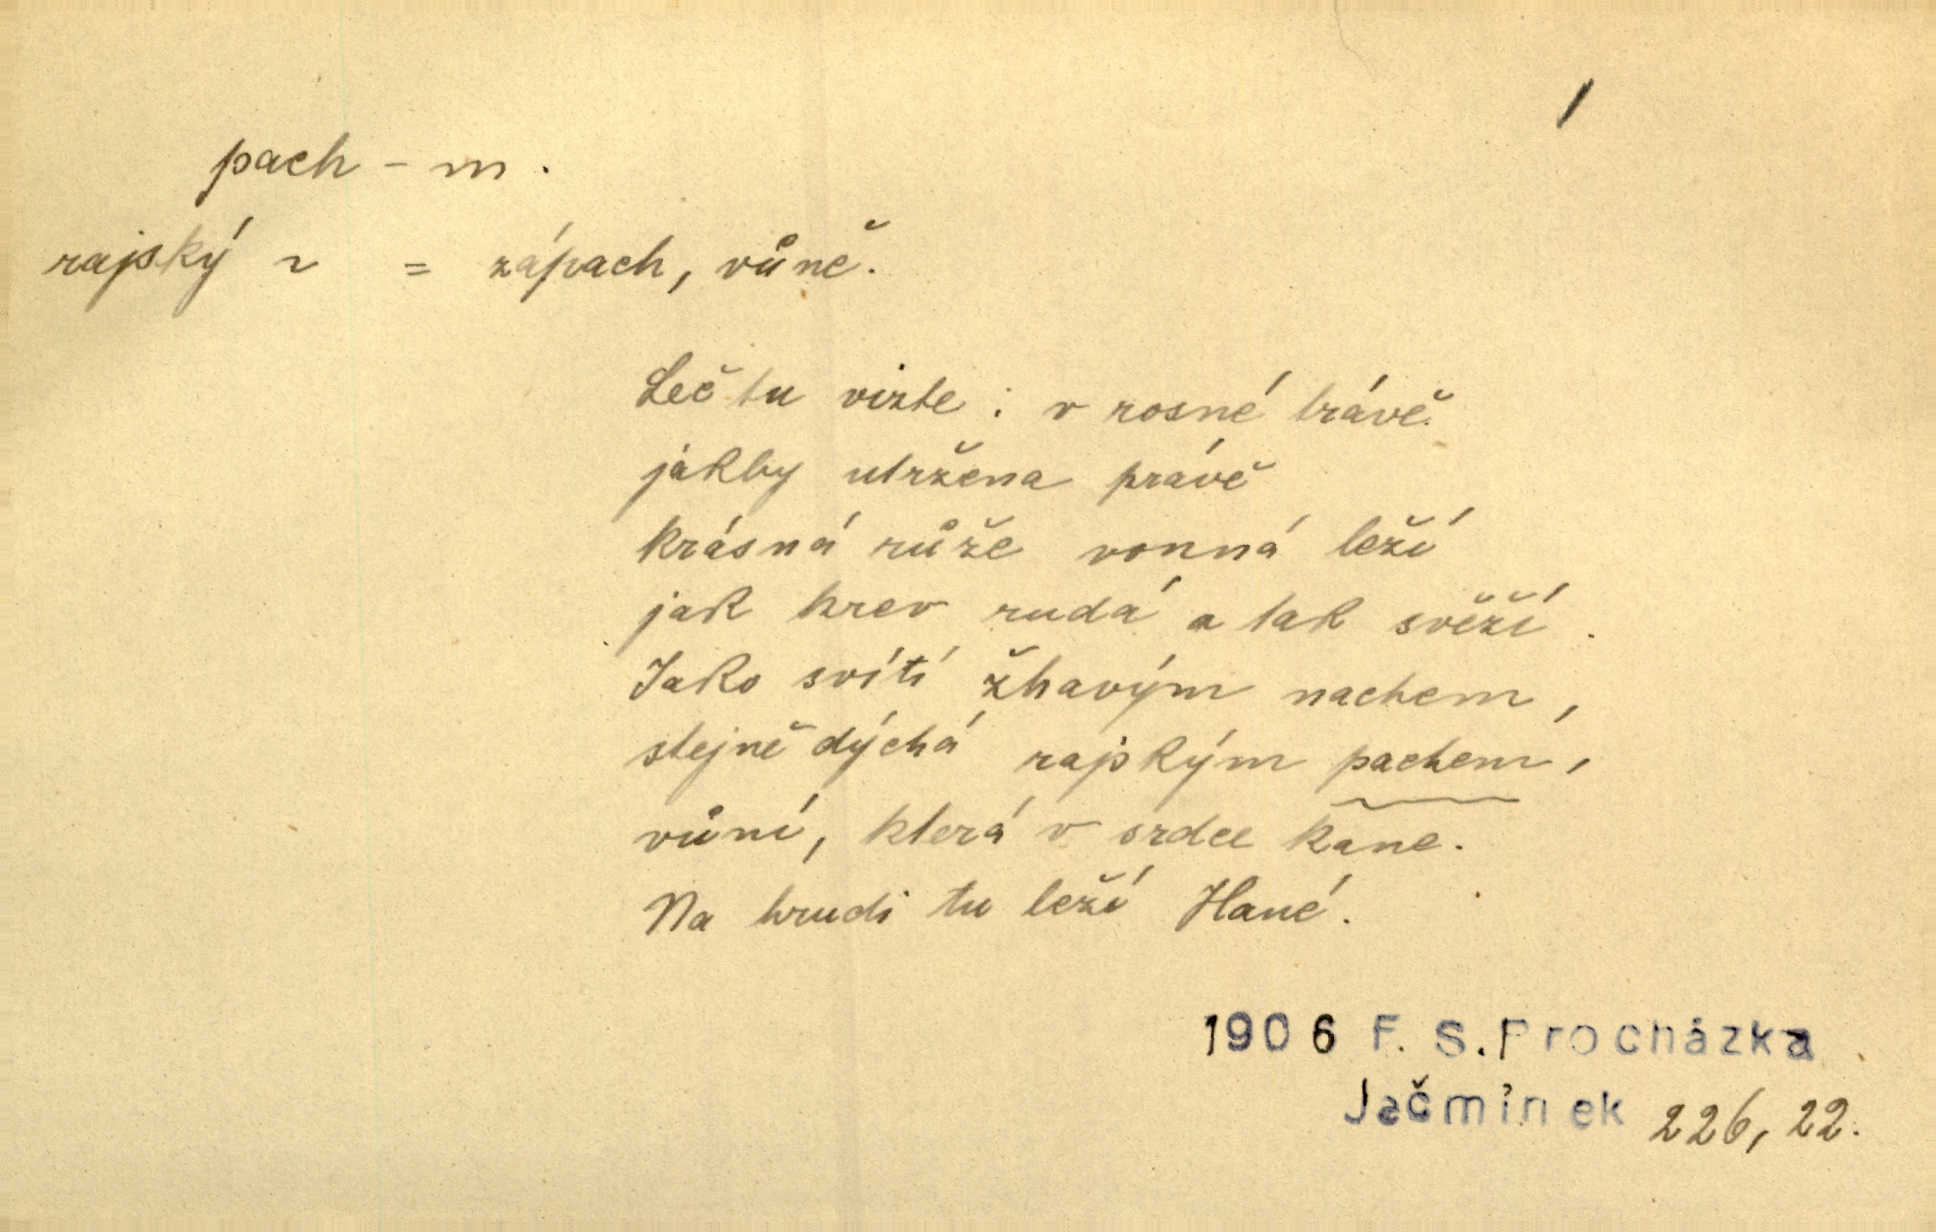 pach - m.
rajský ~ = zápach, vůně.
Leč tu vizte: v rosné trávě
jakby utržena právě
krásná růže vonná leží
jak krev rudá a tak svěží.
Jako svítí žhavým nachem,
stejně dýchá rajským pachem,
vůní, která v srdce kane.
Na hrudi tu leží Hané.
1906 F. S. Procházka
Ječmínek 226, 22.